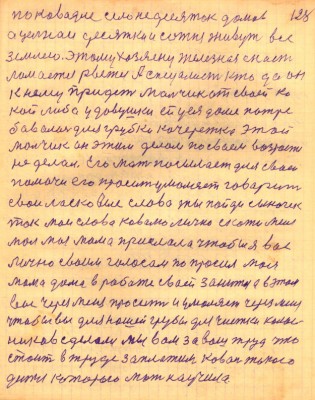 128
по кабадне село недесяток домов
а целыи десятки и сотня живут все
землею. Этому хозяену железная снасть
ломается рветься А специалист кто да он
к нему придет Малчик от своей
кой либа у довушки ст уся доме потре
бавался для грубки кочережка Этой
молчик он этим делом по своем возрасте
не делал. Его мать посылает для своей
помочи Его просит умоляет говарить
свои ласковые слова ты пойди сыночек
так мои слова ковалю лично скажи мене
мол моя мама прислала чтобы я вас
лично своим голосам попросил моя
мама дома в работе своей занята а в этом
вас через меня просеть и умоляет через мену
чтобы вы для нашей грубы для чистки колос
ников сделали мы вам за ваш труд что
стоит в труде заплотим. Ковалю такого
дитя которого мать научила